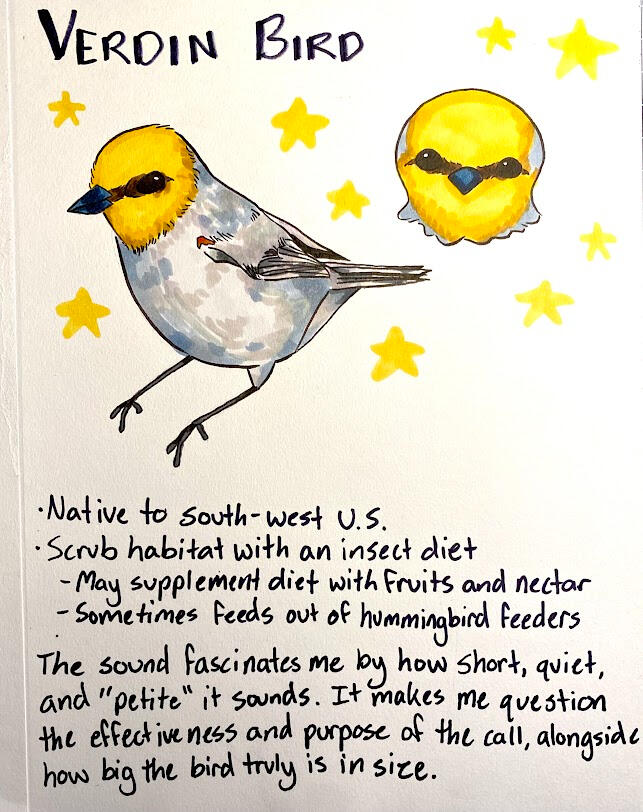 VERDIN BIRD
·Native to south-west U.S.
·Scrub habitat with an insect diet
-May supplement diet with fruits and nectar
-Sometimes feeds out of hummingbird feeders
The sound fascinates me by how short, quiet,
and "petite" it sounds. It makes me question
the effectiveness and purpose of the call, alongside
how big the bird truly is in size.